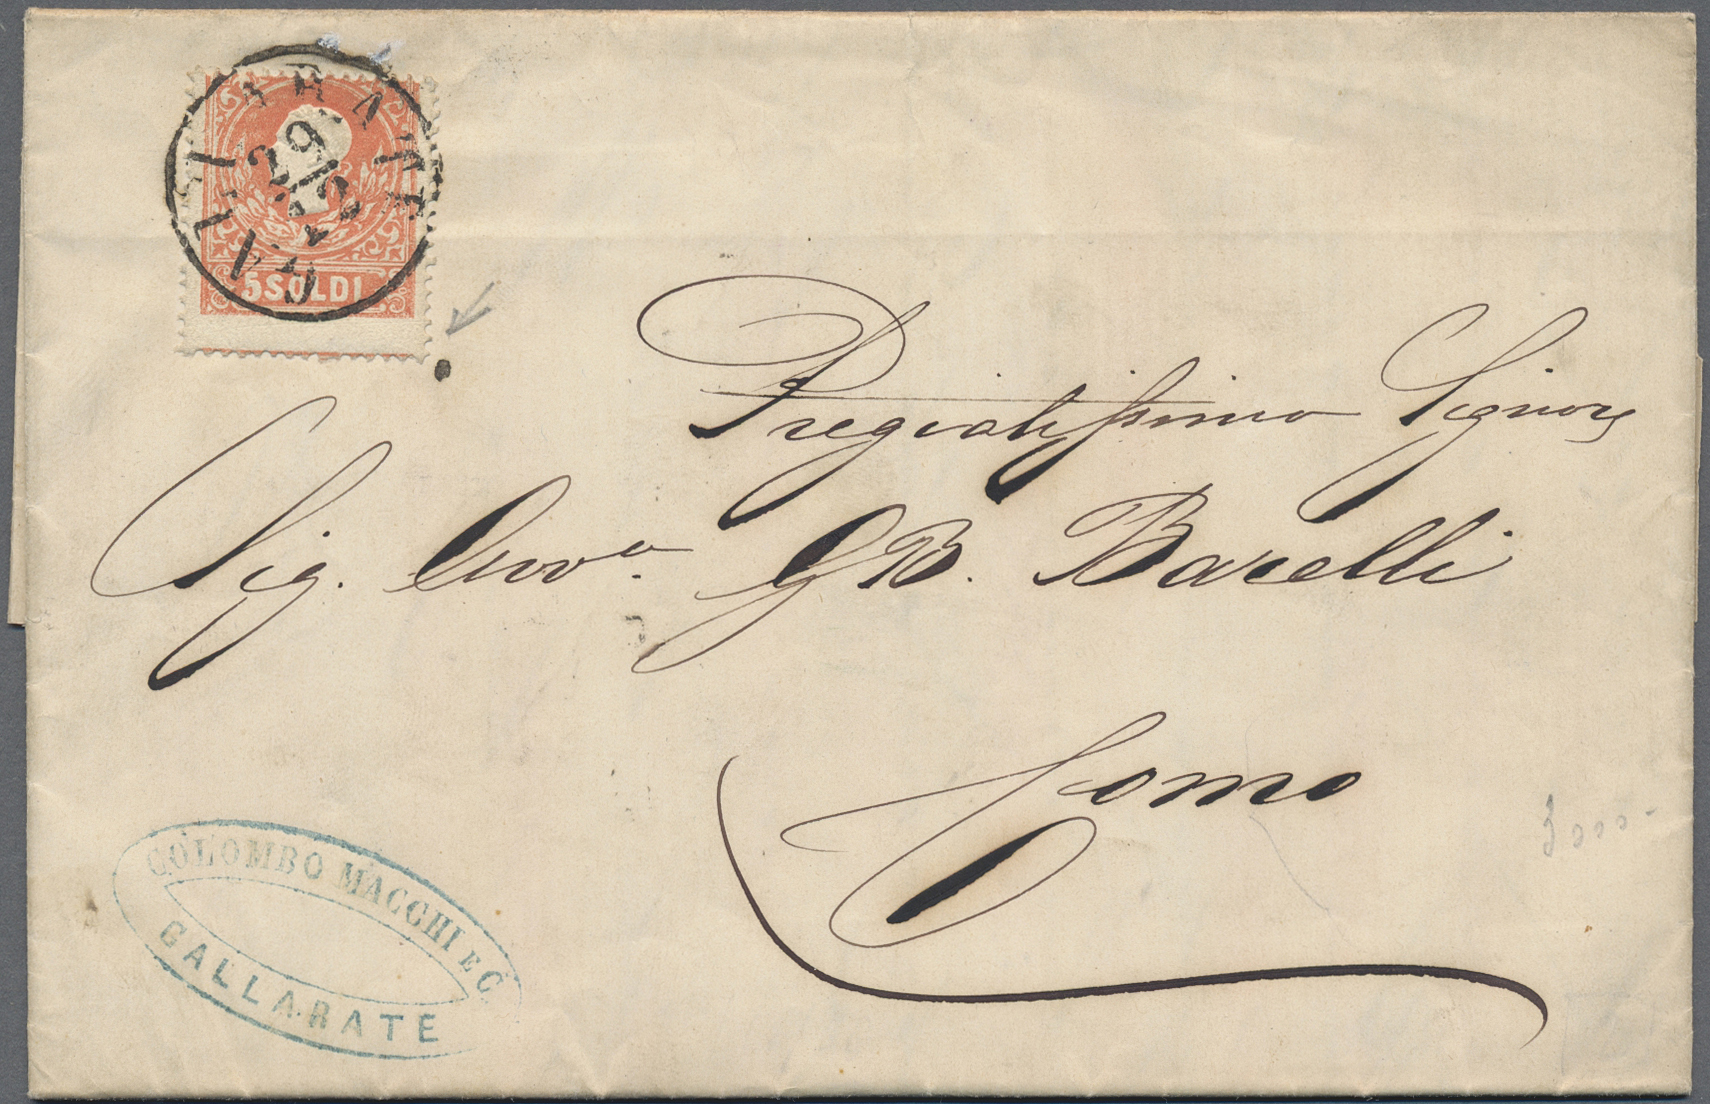 GALLARATE
29/12
5 SOLDI
Pregiatissimo Signore
Sig. Avv.o GB. Barelli
Como
3000-
COLOMBO MACCHI E C.
GALLARATE